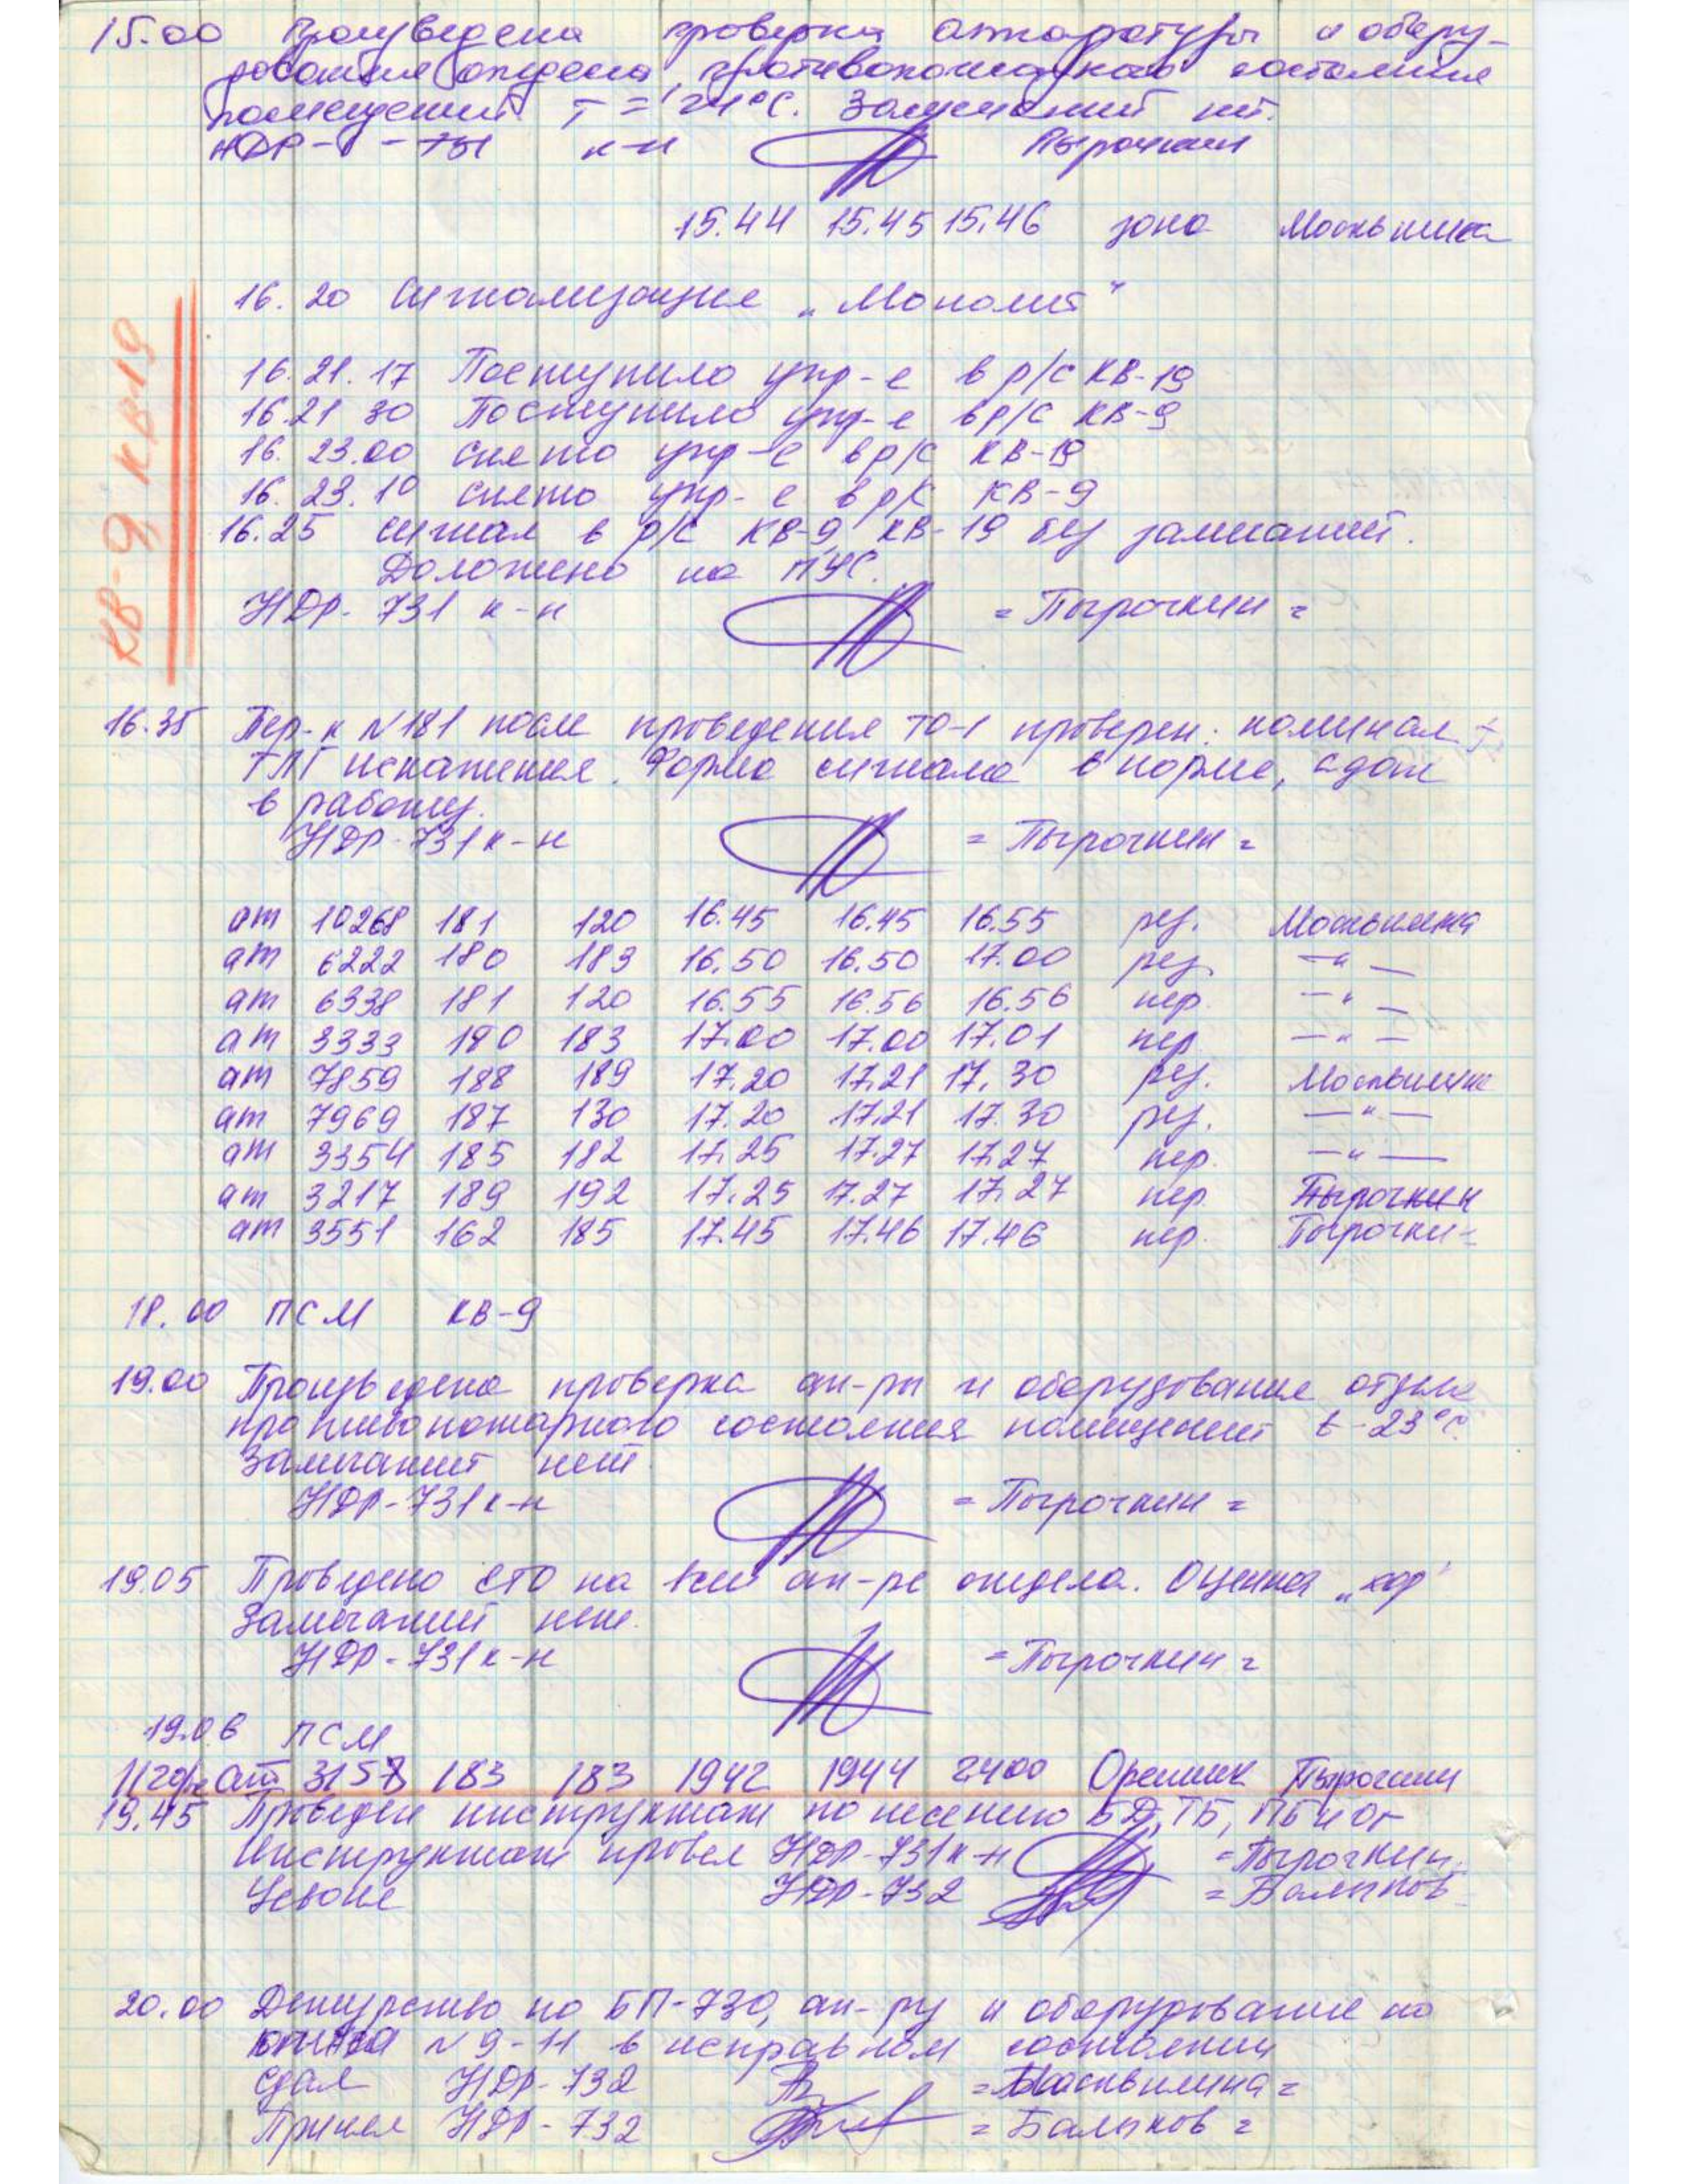 15.00 Произведена проверка аппаратуры и обору-
дования отдела, противопожарного состояния
помещений T = 21°C. Замечаний нет.
НДР- к-н Пырочкин
15.44 15.45 15.46 зона Москвитина
16.20 Сигнализация „Монолит"
КВ-9 КВ-19
16.21.17 Поступило упр-е в р/с КВ-19
16.21 30 Поступило упр-е в р/с КВ-9
16.23.00 снято упр-е в р/с КВ-19
16.23.10 снято упр-е в р/с КВ-9
16.25 сигнал в р/с КВ-9, КВ-19 без замечаний.
Доложено на ПУС.
НДР-731 к-н = Пырочкин =
16.35 Пер-к №181 после проведения ТО-1 проверен: номинал
ТЛГ искажения. Форма сигнала в норме, сдан
в работу.
НДР-731 к-н = Пырочкин =
ат 10268 181 120 16.45 16.45 16.55 рез. Москвитина
ат 6222 180 183 16.50 16.50 17.00 рез. —"—
ат 6338 181 120 16.55 16.56 16.56 пер. —"—
ат 3333 190 183 17.00 17.00 17.01 пер. —"—
ат 7859 188 189 17.20 17.21 17.30 рез. Москвитина
ат 7969 187 130 17.20 17.21 17.30 рез. —"—
ат 3354 185 182 17.25 17.27 17.27 пер. —"—
ат 3217 189 192 17.25 17.27 17.27 пер. Пырочкин
ат 3551 162 185 17.45 17.46 17.46 пер. Пырочкин
18.00 ПСМ КВ-9
19.00 Произведена проверка ап-ры и оборудования отдела
противопожарного состояния помещений t-23°C.
Замечаний нет.
НДР-731 к-н = Пырочкин =
19.05 Проведено ЕТО на всей ап-ре отдела. Оценка „хор"
Замечаний нет.
НДР-731 к-н = Пырочкин =
19.06 ПСМ
ат 3158 183 183 1942 1944 2400 Орешник Пырочкин
19.45 Проведен инструктаж по несению БД, ТБ, ПБ и Ог
Инструктаж провел НДР-731 к-н = Пырочкин
Усвоил НДР-732 = Балыков
20.00 Дежурство по БП-730, ап-ру и оборудование по
№ 9-11 в исправном состоянии
Сдал НДР-732 = Москвитина =
Принял НДР-732 = Балыков =